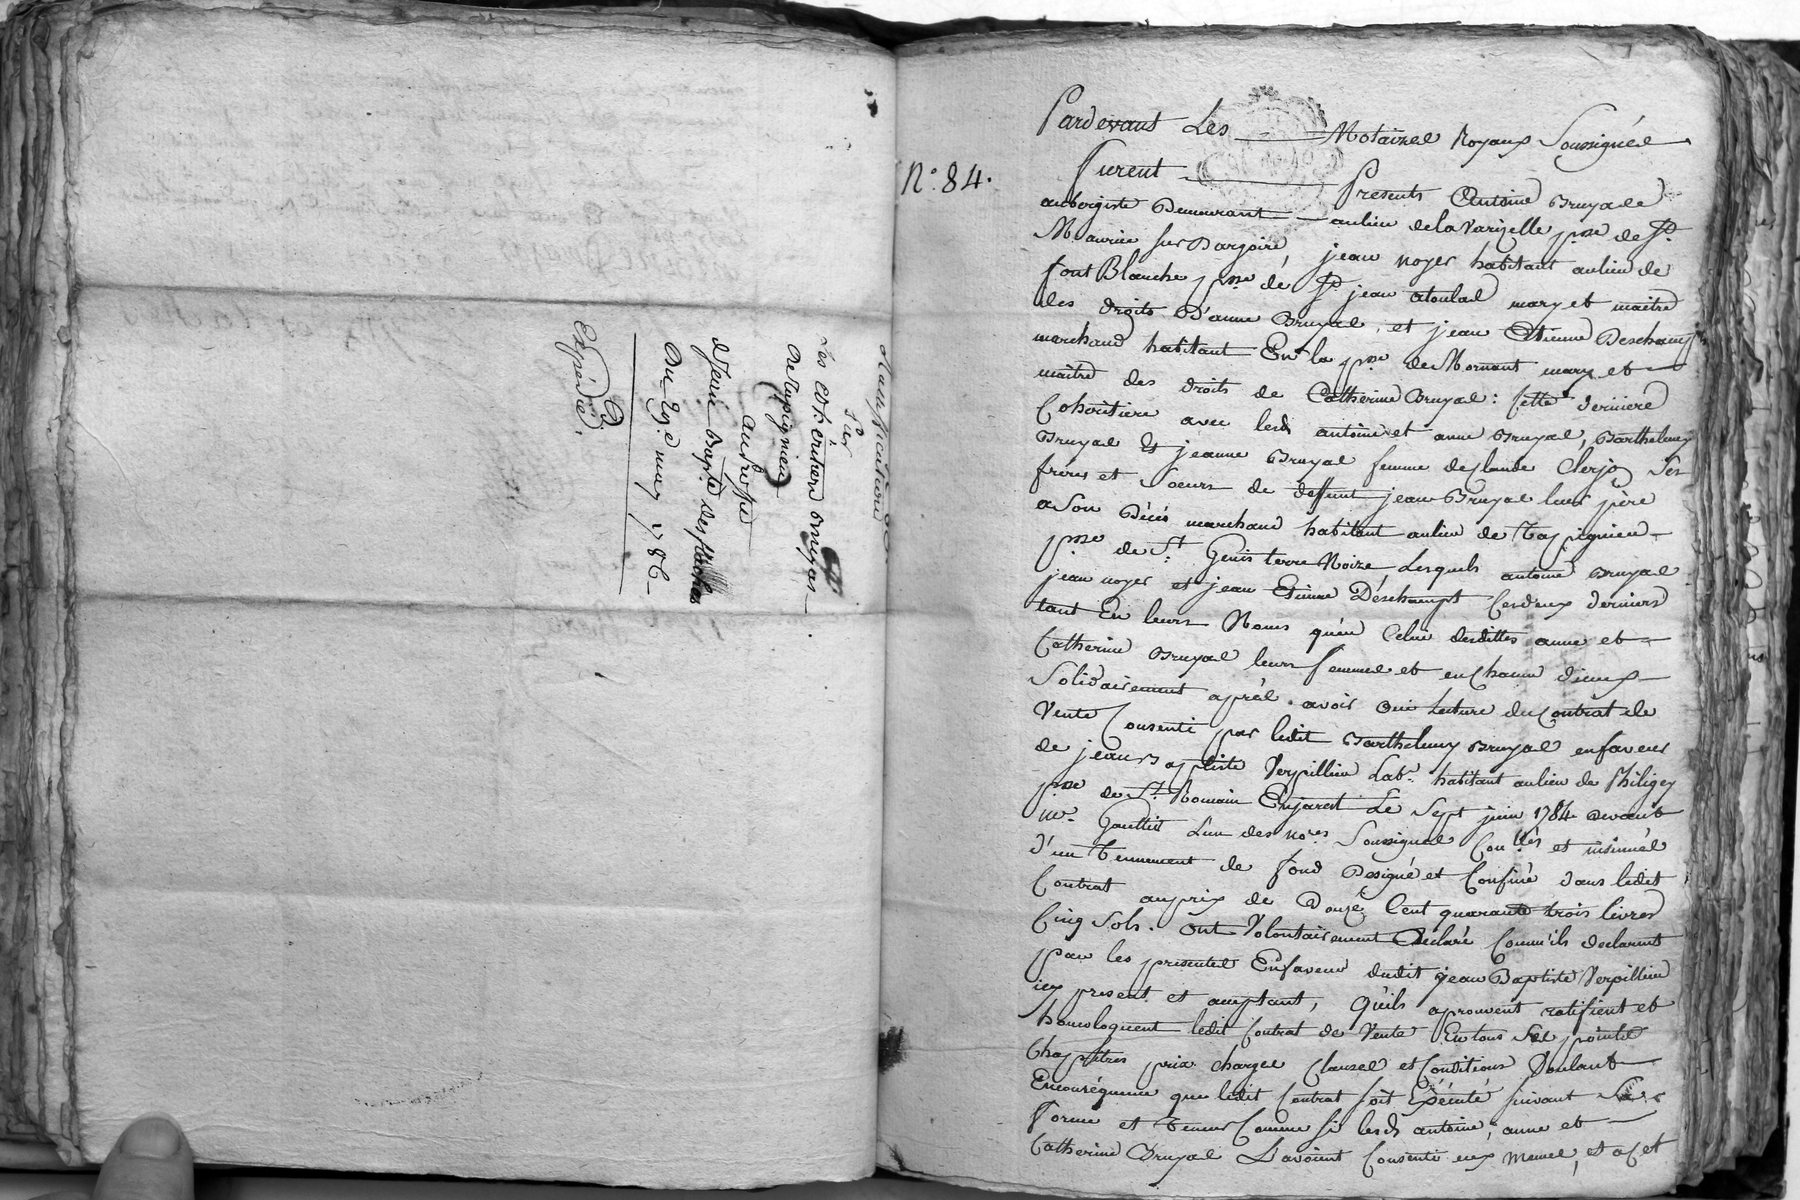 sur
Les cohéritiers Bruyas
De Tapignieu
autorisé
Du 29e may 1786
Expédié.
N.° 84.
Pardevant Les Notaires Royaux Soussignés
Furent Présents Antoine Bruyas
aubergiste Demeurant au lieu de la Varizelle psse de St
Maurice sur Dargoire, jean noyer habitant au lieu de
font Blanche psse de St jean atoulas mary et maitre
des droits D'anne Bruyas, et jean Etienne Deschamps
marchand habitant En la psse de Mornant mary et
maitre des droits de Catherine Bruyas: Cette derniere
Cohéritiere avec lesd antoine et anne Bruyas, Barthelemy
Bruyas Et jeanne Bruyas femme de Claude Clerjo Ses
freres et Soeurs de deffunt jean Bruyas leur père
a Son Décès marchand habitant au lieu de Tapignieu
psse de St Genis terre Noire, Lesquels antoine Bruyas
jean noyer et jean Etienne Deschamps Ces deux derniers
tant En leurs Noms qu'en Celui desdittes anne et
Catherine Bruyas leurs femmes et en Chacun d'eux
Solidairement après avoir oui lecture du Contrat de
Vente Consenti par ledit Barthelemy Bruyas en faveur
de jean Baptiste Verpillieu Labr habitant au lieu de Philigey
psse de St Romain En jarest Le Sept juin 1784 devant
Me Gaultier L'un des nores Soussignés Conlés et insinué
d'un tennement de fond Designé et Confiné dans ledit
Contrat au prix de Douze Cent quarante trois livres
Cinq Sols. ont Volontairement Déclaré Comm'ils déclarent
par les presentes En faveur dudit jean Baptiste Verpillieu
icy present et acceptant, Qu'ils aprouvent ratifient et
homologuent ledit Contrat de Vente En tous Ses points
Chapitres prix charges Clauses et Conditions Voulant
En conséquence que ledit Contrat soit Exécuté suivant Sa
forme et teneur Comme Si lesd antoine, anne et
Catherine Bruyas L'avoient Consenti eux mêmes, et a Cet